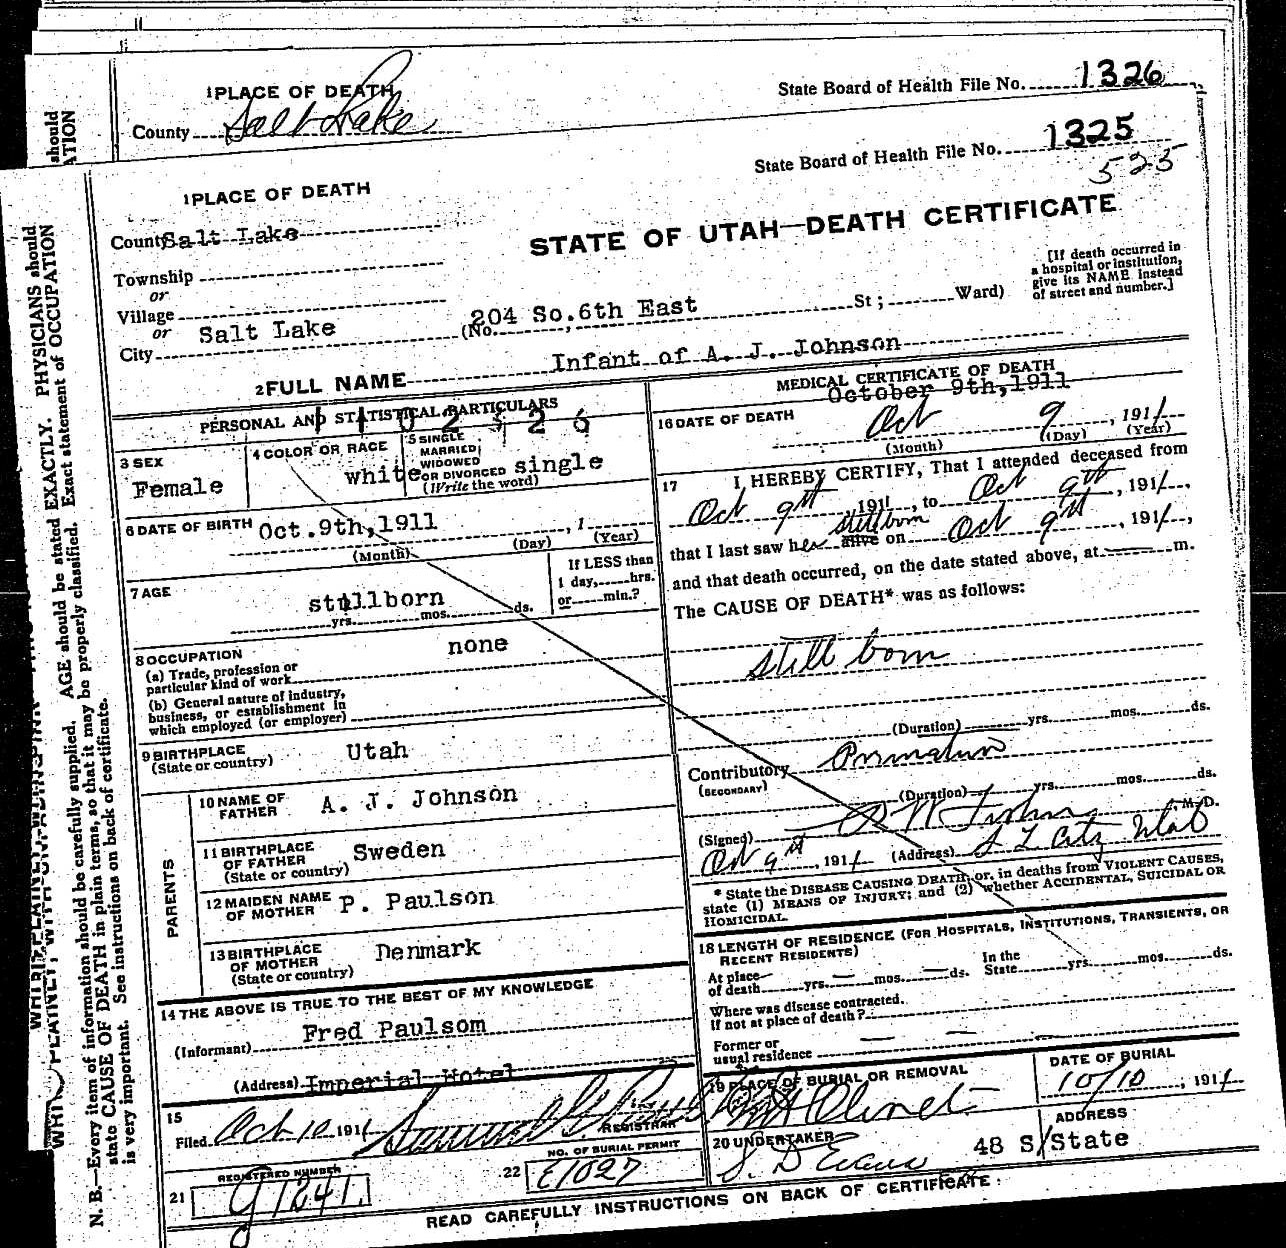 1PLACE OF DEATH
State Board of Health File No. 1326
County Salt Lake
State Board of Health File No. 1325
525
1PLACE OF DEATH
County Salt Lake
STATE OF UTAH—DEATH CERTIFICATE
Township
or
Village
or
City Salt Lake (No. 204 So.6th East St; Ward)
[If death occurred in
a hospital or institution,
give its NAME instead
of street and number.]
2FULL NAME Infant of A. J. Johnson
PERSONAL AND STATISTICAL PARTICULARS
3 SEX
Female
4 COLOR OR RACE
white
5 SINGLE
MARRIED
WIDOWED
OR DIVORCED single
(Write the word)
6 DATE OF BIRTH Oct.9th,1911 , 1
(Month) (Day) (Year)
7 AGE
stillborn
yrs. mos. ds.
If LESS than
1 day, hrs.
or min.?
8 OCCUPATION none
(a) Trade, profession or
particular kind of work
(b) General nature of industry,
business, or establishment in
which employed (or employer)
9 BIRTHPLACE
(State or country) Utah
PARENTS
10 NAME OF
FATHER A. J. Johnson
11 BIRTHPLACE
OF FATHER
(State or country) Sweden
12 MAIDEN NAME
OF MOTHER P. Paulson
13 BIRTHPLACE
OF MOTHER
(State or country) Denmark
14 THE ABOVE IS TRUE TO THE BEST OF MY KNOWLEDGE
(Informant) Fred Paulsom
(Address) Imperial Hotel
15
Filed Oct 10 191
REGISTRAR
REGISTERED NUMBER
21
NO. OF BURIAL PERMIT
22 E1027
MEDICAL CERTIFICATE OF DEATH
October 9th,1911
16 DATE OF DEATH
Oct 9 , 1911
(Month) (Day) (Year)
17 I HEREBY CERTIFY, That I attended deceased from
Oct 9th 1911, to Oct 9th , 1911,
that I last saw her alive stillborn on Oct 9th , 1911,
and that death occurred, on the date stated above, at m.
The CAUSE OF DEATH* was as follows:
still born
(Duration) yrs. mos. ds.
Contributory
(SECONDARY)
(Duration) yrs. mos. ds.
(Signed) M. D.
Oct 9th , 1911 (Address) S L City Utah
* State the DISEASE CAUSING DEATH; or, in deaths from VIOLENT CAUSES,
state (1) MEANS OF INJURY; and (2) whether ACCIDENTAL, SUICIDAL OR
HOMICIDAL.
18 LENGTH OF RESIDENCE (FOR HOSPITALS, INSTITUTIONS, TRANSIENTS, OR
RECENT RESIDENTS)
At place
of death yrs. mos. ds.
In the
State yrs. mos. ds.
Where was disease contracted.
if not at place of death?
Former or
usual residence
19 PLACE OF BURIAL OR REMOVAL
Mt Olivet
DATE OF BURIAL
10/10 , 1911
20 UNDERTAKER
S. D Evans
ADDRESS
48 S/State
READ CAREFULLY INSTRUCTIONS ON BACK OF CERTIFICATE
N. B.—Every item of information should be carefully supplied. AGE should be stated EXACTLY. PHYSICIANS should
state CAUSE OF DEATH in plain terms, so that it may be properly classified. Exact statement of OCCUPATION
is very important. See instructions on back of certificate.